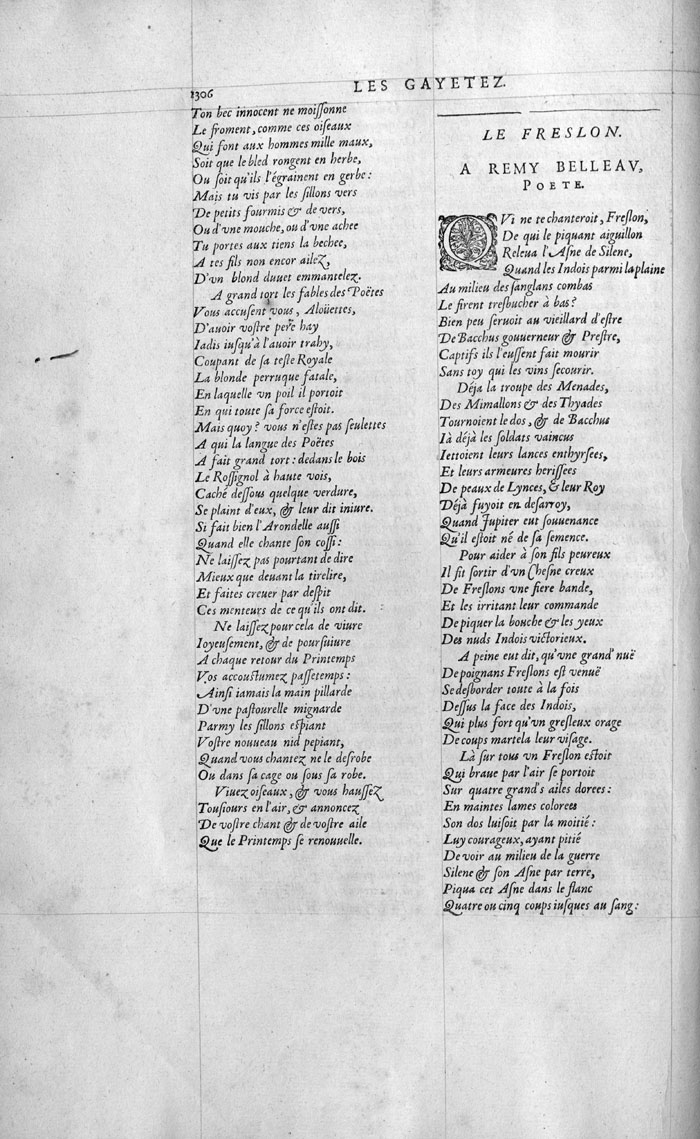 1306
LES GAYETEZ.
Ton bec innocent ne moiſſonne
Le froment, comme ces oiſeaux
Qui font aux hommes mille maux,
Soit que le bled rongent en herbe,
Ou ſoit qu'ils l'égrainent en gerbe:
Mais tu vis par les ſillons vers
De petits fourmis & de vers,
Ou d'vne mouche, ou d'vne achee
Tu portes aux tiens la bechee,
A tes fils non encor ailez,
D'vn blond duuet emmantelez.
A grand tort les fables des Poëtes
Vous accuſent vous, Aloüettes,
D'auoir voſtre pere hay
Iadis iuſqu'à l'auoir trahy,
Coupant de ſa teſte Royale
La blonde perruque fatale,
En laquelle vn poil il portoit
En qui toute ſa force eſtoit.
Mais quoy? vous n'eſtes pas ſeulettes
A qui la langue des Poëtes
A fait grand tort: dedans le bois
Le Roſſignol à haute vois,
Caché deſſous quelque verdure,
Se plaint d'eux, & leur dit iniure.
Si fait bien l'Arondelle auſſi
Quand elle chante ſon coſſi:
Ne laiſſez pas pourtant de dire
Mieux que deuant la tirelire,
Et faites creuer par deſpit
Ces menteurs de ce qu'ils ont dit.
Ne laiſſez pour cela de viure
Ioyeuſement, & de pourſuiure
A chaque retour du Printemps
Vos accouſtumez paſſetemps:
Ainſi iamais la main pillarde
D'vne paſtourelle mignarde
Parmy les ſillons eſpiant
Voſtre nouueau nid pepiant,
Quand vous chantez ne le deſrobe
Ou dans ſa cage ou ſous ſa robe.
Viuez oiſeaux, & vous hauſſez
Touſiours en l'air, & annoncez
De voſtre chant & de voſtre aile
Que le Printemps ſe renouuelle.
LE FRESLON.
A REMY BELLEAV,
POETE.
QVi ne te chanteroit, Freſlon,
De qui le piquant aiguillon
Releua l'Aſne de Silene,
Quand les Indois parmi la plaine
Au milieu des ſanglans combas
Le firent treſbucher à bas?
Bien peu ſeruoit au vieillard d'eſtre
De Bacchus gouuerneur & Preſtre,
Captifs ils l'euſſent fait mourir
Sans toy qui les vins ſecourir.
Déja la troupe des Menades,
Des Mimallons & des Thyades
Tournoient le dos, & de Bacchus
Ià déjà les ſoldats vaincus
Iettoient leurs lances enthyrſees,
Et leurs armeures heriſſees
De peaux de Lynces, & leur Roy
Déjà fuyoit en deſarroy,
Quand Jupiter eut ſouuenance
Qu'il eſtoit né de ſa ſemence.
Pour aider à ſon fils peureux
Il fit ſortir d'vn Cheſne creux
De Freſlons vne fiere bande,
Et les irritant leur commande
De piquer la bouche & les yeux
Des nuds Indois victorieux.
A peine eut dit, qu'vne grand' nuë
De poignans Freſlons eſt venuë
Se deſborder toute à la fois
Deſſus la face des Indois,
Qui plus fort qu'vn greſleux orage
De coups martela leur viſage.
Là ſur tous vn Freſlon eſtoit
Qui braue par l'air ſe portoit
Sur quatre grand's ailes dorees:
En maintes lames colorees
Son dos luiſoit par la moitié:
Luy courageux, ayant pitié
De voir au milieu de la guerre
Silene & ſon Aſne par terre,
Piqua cet Aſne dans le flanc
Quatre ou cinq coups iuſques au ſang: